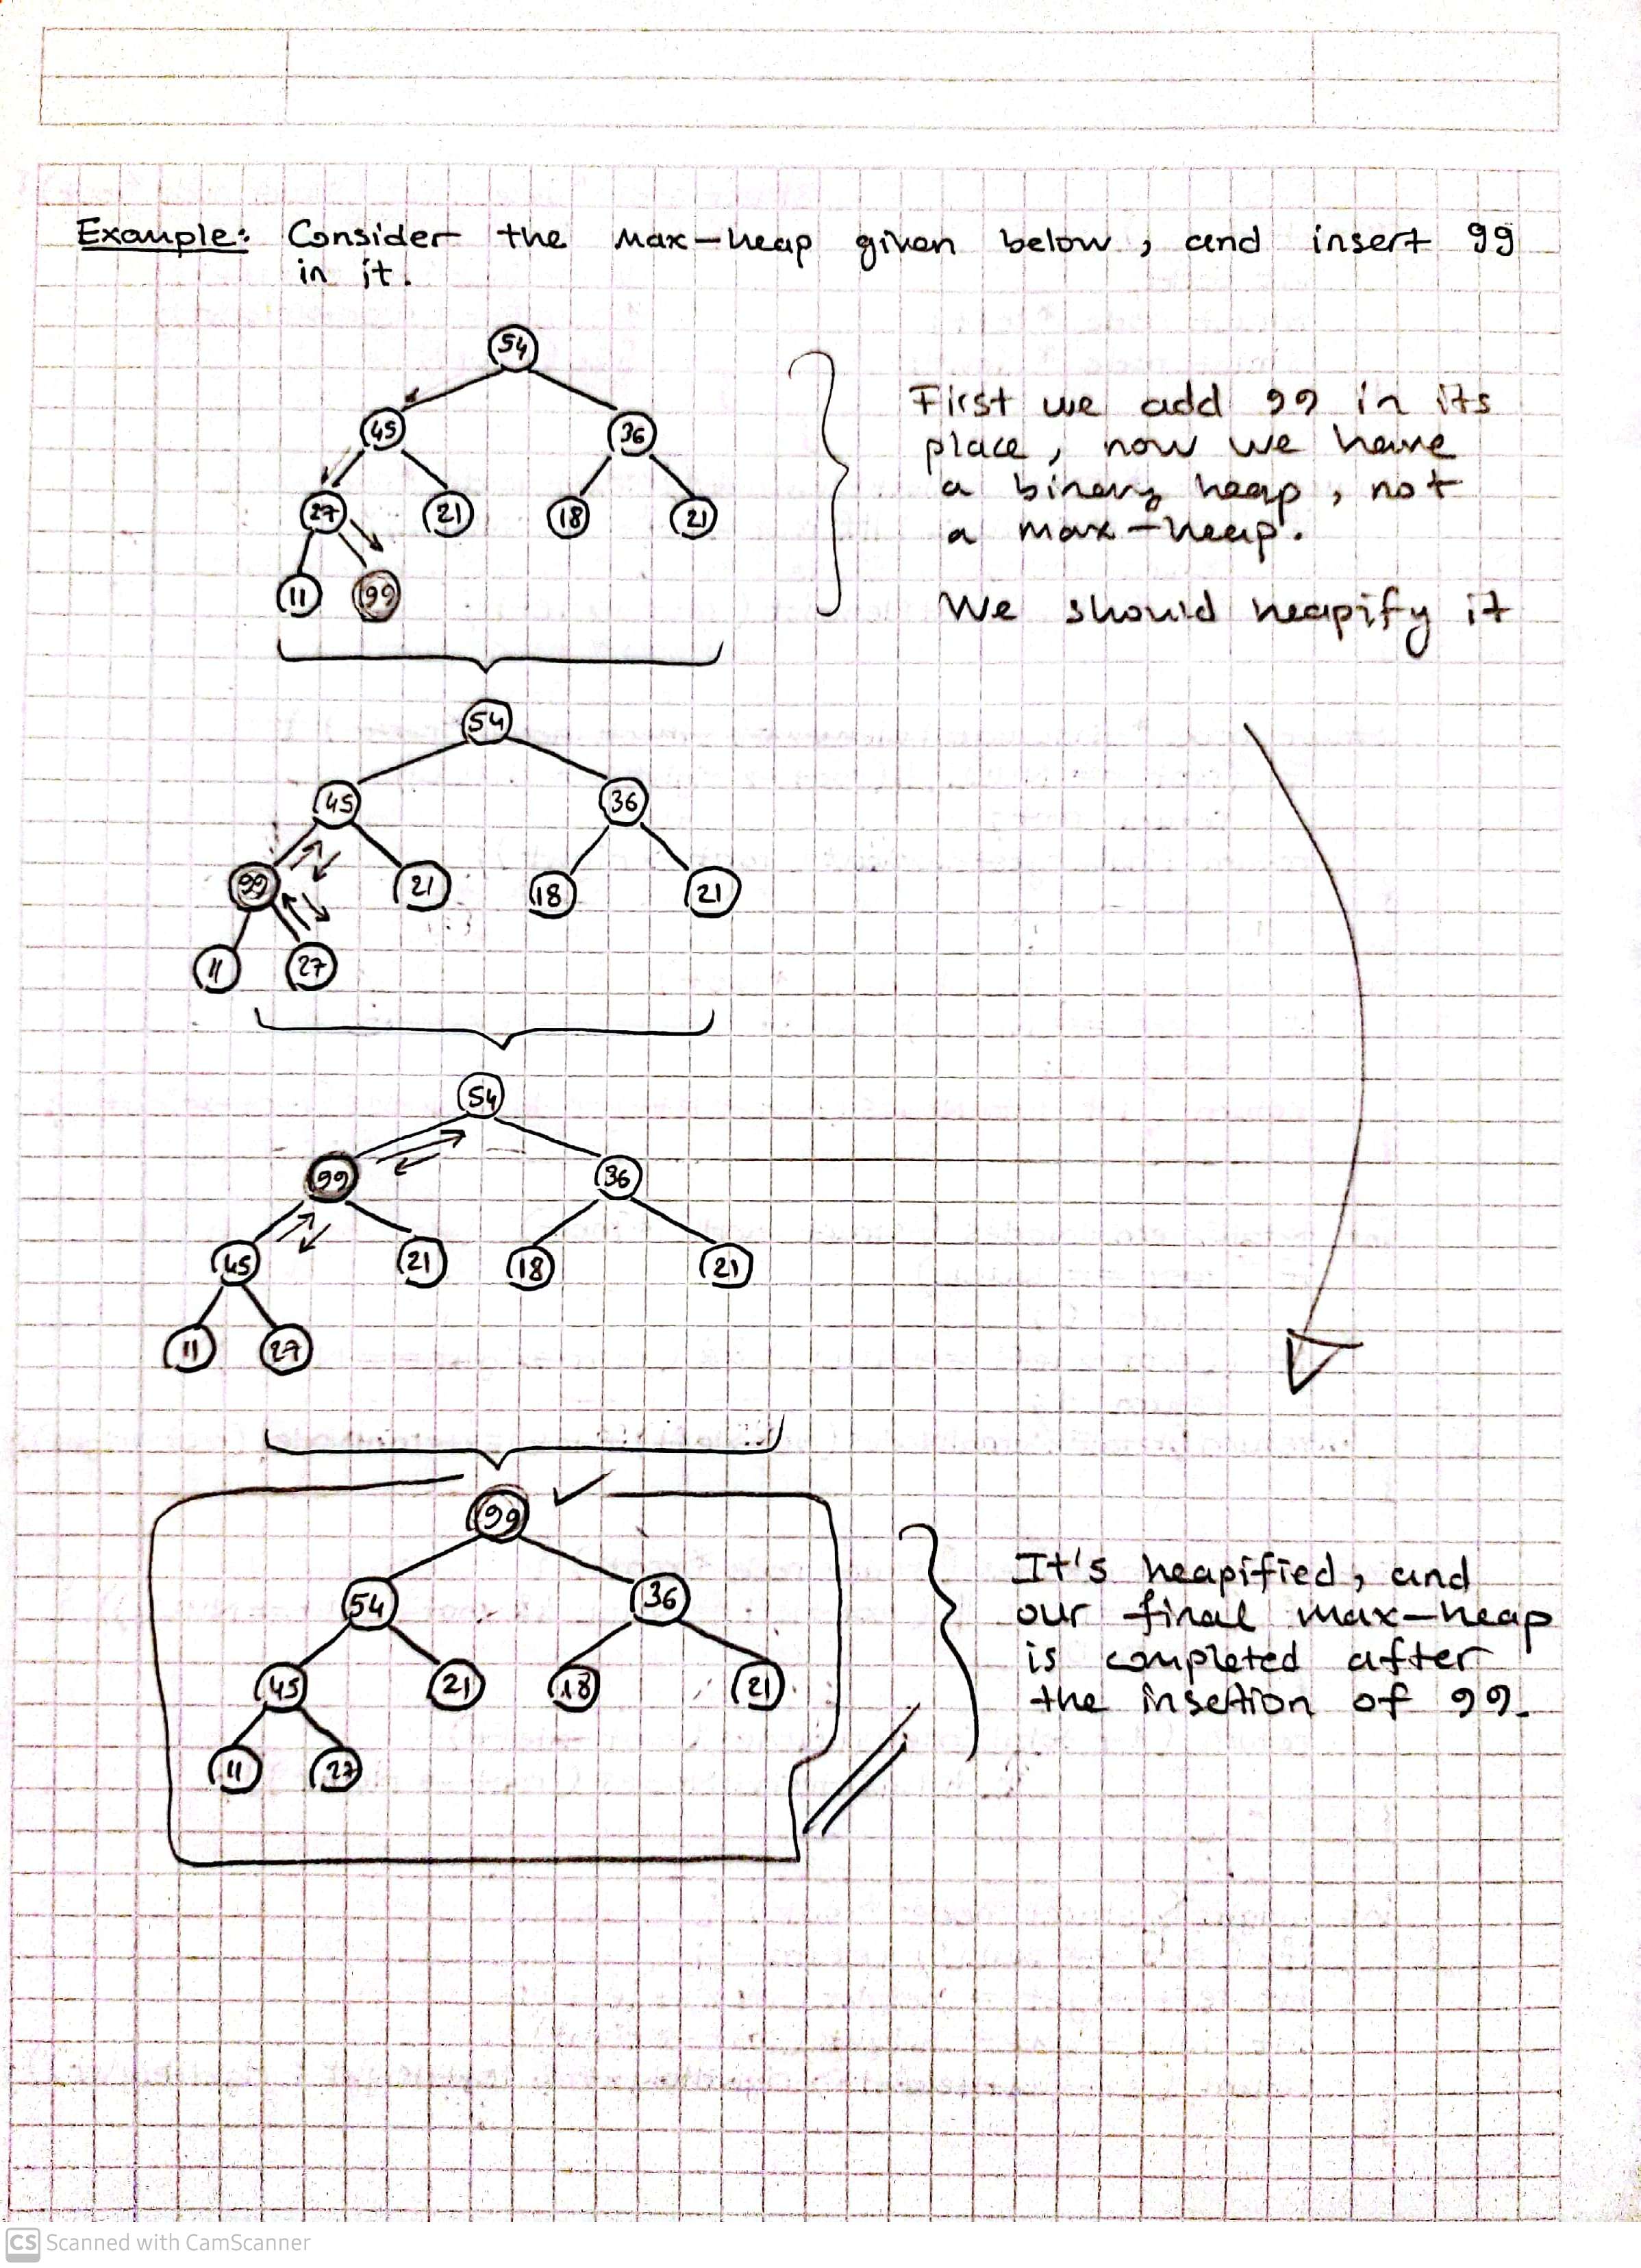 Example: Consider the max-heap given below, and insert 99
in it.
54
45 36
27 21 18 21
11 99
First we add 99 in its
place, now we have
a binary heap, not
a max-heap.
We should heapify it
54
45 36
99 21 18 21
11 27
54
99 36
45 21 18 21
11 27
99
54 36
45 21 18 21
11 27
It's heapified, and
our final max-heap
is completed after
the insetion of 99.
CS Scanned with CamScanner